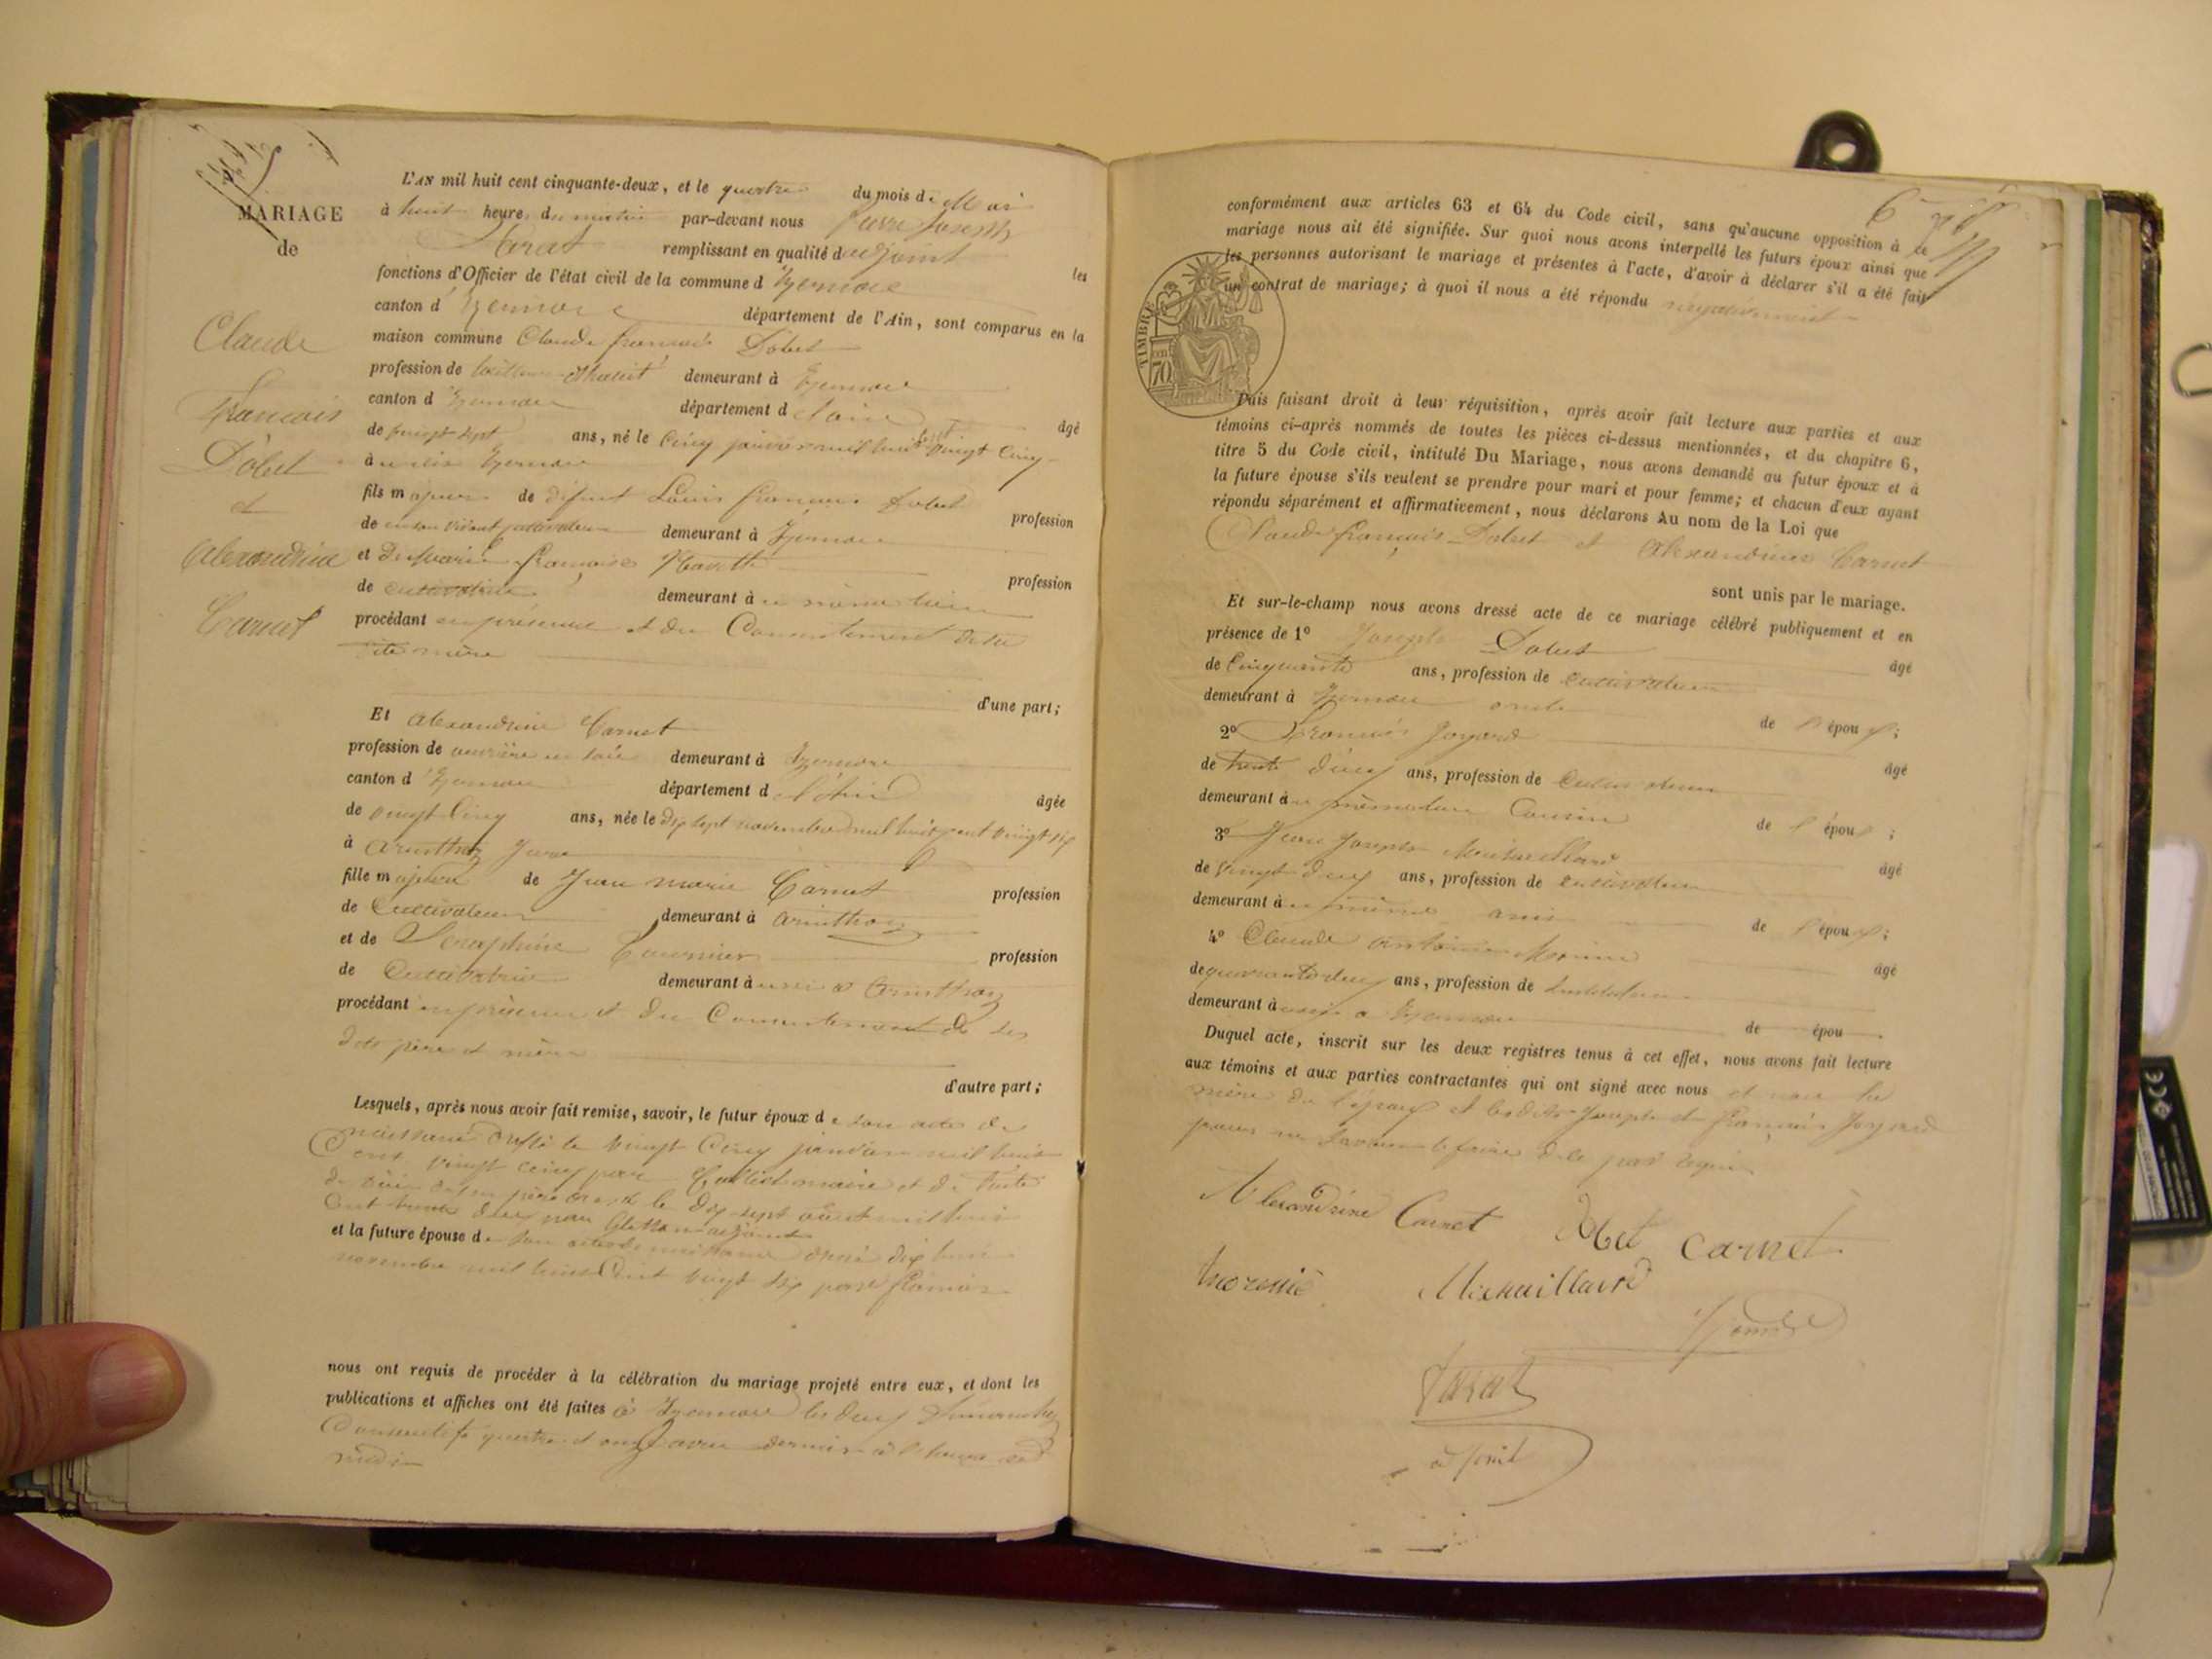 MARIAGE
de
Claude
François
Dobet
et
Alexandrine
Carnet
L'AN mil huit cent cinquante-deux, et le quatre du mois de Mai
à huit heure du matin par-devant nous Pierre Joseph
remplissant en qualité d'adjoint les
fonctions d'Officier de l'état civil de la commune d'Izernore
canton d'Izernore département de l'Ain, sont comparus en la
maison commune Claude françois Dobet
profession de demeurant à Izernore
canton d'Izernore département de l'ain âgé
de vingt sept ans, né le Cinq janvier mil huit cent vingt Cinq
à Izernore
fils majeur de défunt Louis françois Dobet profession
de en son vivant cultivateur demeurant à Izernore
et de Marie françoise profession
de cultivatrice demeurant à
procédant en présence et du Consentement de sa
dite mère
d'une part;
Et Alexandrine Carnet
profession de ouvrière en soie demeurant à Izernore
canton d'Izernore département de l'Ain âgée
de vingt Cinq ans, née le dix sept novembre mil huit cent vingt six
à Arinthoz Jura
fille majeure de Jean marie Carnet profession
de Cultivateur demeurant à arinthoz
et de Séraphine profession
de Cultivatrice demeurant à aussi à Arinthoz
procédant en présence et du Consentement de ses
dits père et mère
d'autre part;
Lesquels, après nous avoir fait remise, savoir, le futur époux de son acte de
naissance dressé le vingt Cinq janvier mil huit
Cent vingt cinq par maire et de l'acte
de décès de son père dressé le dix sept août mil huit
Cent trente deux par adjoint
et la future épouse de son acte de naissance dressé dix huit
novembre mil huit Cent vingt six par
nous ont requis de procéder à la célébration du mariage projeté entre eux, et dont les
publications et affiches ont été faites à Izernore les deux dimanches
Consécutifs quatre et onze avril dernier à l'heure de
midi
conformément aux articles 63 et 64 du Code civil, sans qu'aucune opposition à ce
mariage nous ait été signifiée. Sur quoi nous avons interpellé les futurs époux ainsi que
les personnes autorisant le mariage et présentes à l'acte, d'avoir à déclarer s'il a été fait
un contrat de mariage; à quoi il nous a été répondu négativement
TIMBRE
70
Puis faisant droit à leur réquisition, après avoir fait lecture aux parties et aux
témoins ci-après nommés de toutes les pièces ci-dessus mentionnées, et du chapitre 6,
titre 5 du Code civil, intitulé Du Mariage, nous avons demandé au futur époux et à
la future épouse s'ils veulent se prendre pour mari et pour femme; et chacun d'eux ayant
répondu séparément et affirmativement, nous déclarons Au nom de la Loi que
Claude françois Dobet et Alexandrine Carnet
sont unis par le mariage.
Et sur-le-champ nous avons dressé acte de ce mariage célébré publiquement et en
présence de 1° Joseph Dobet âgé
de Cinquante ans, profession de cultivateur
demeurant à Izernore oncle de l'époux;
2° François Joyard âgé
de trente deux ans, profession de cultivateur
demeurant à Cousin de l'époux;
3° Jean Joseph âgé
de vingt deux ans, profession de cultivateur
demeurant à ami de l'époux;
4° Claude antoine âgé
de quarante deux ans, profession de
demeurant à aussi à Izernore de épou
Duquel acte, inscrit sur les deux registres tenus à cet effet, nous avons fait lecture
aux témoins et aux parties contractantes qui ont signé avec nous et non la
mère de l'époux et lesdits Joseph et François Joyard
pour ne savoir le faire de ce requis
Alexandrine Carnet Dobet Carnet
adjoint